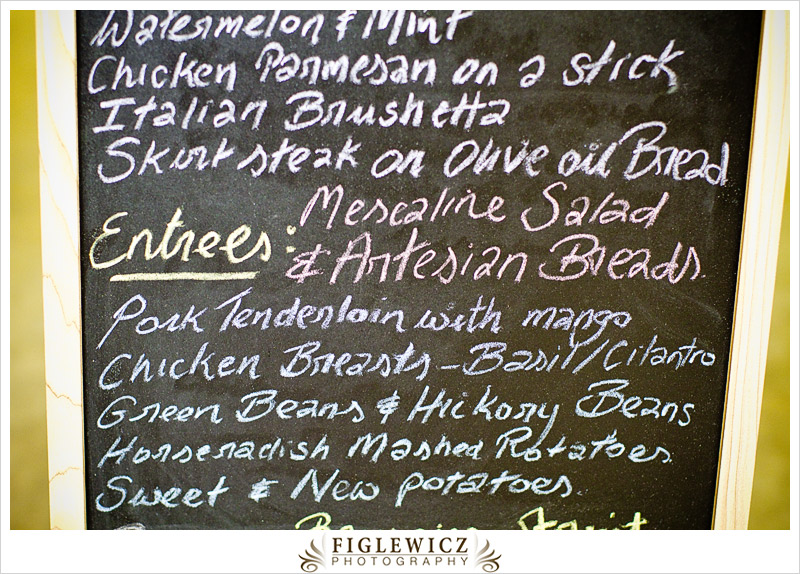 Watermelon & Mint
Chicken Parmesan on a stick
Italian Brushetta
Skirt steak on Olive oil Bread
Entrees: Mescaline Salad
& Artesian Breads.
Pork Tenderloin with mango
Chicken Breasts - Basil/Cilantro
Green Beans & Hickory Beans
Horseradish Mashed Potatoes.
Sweet & New potatoes.
FIGLEWICZ
PHOTOGRAPHY